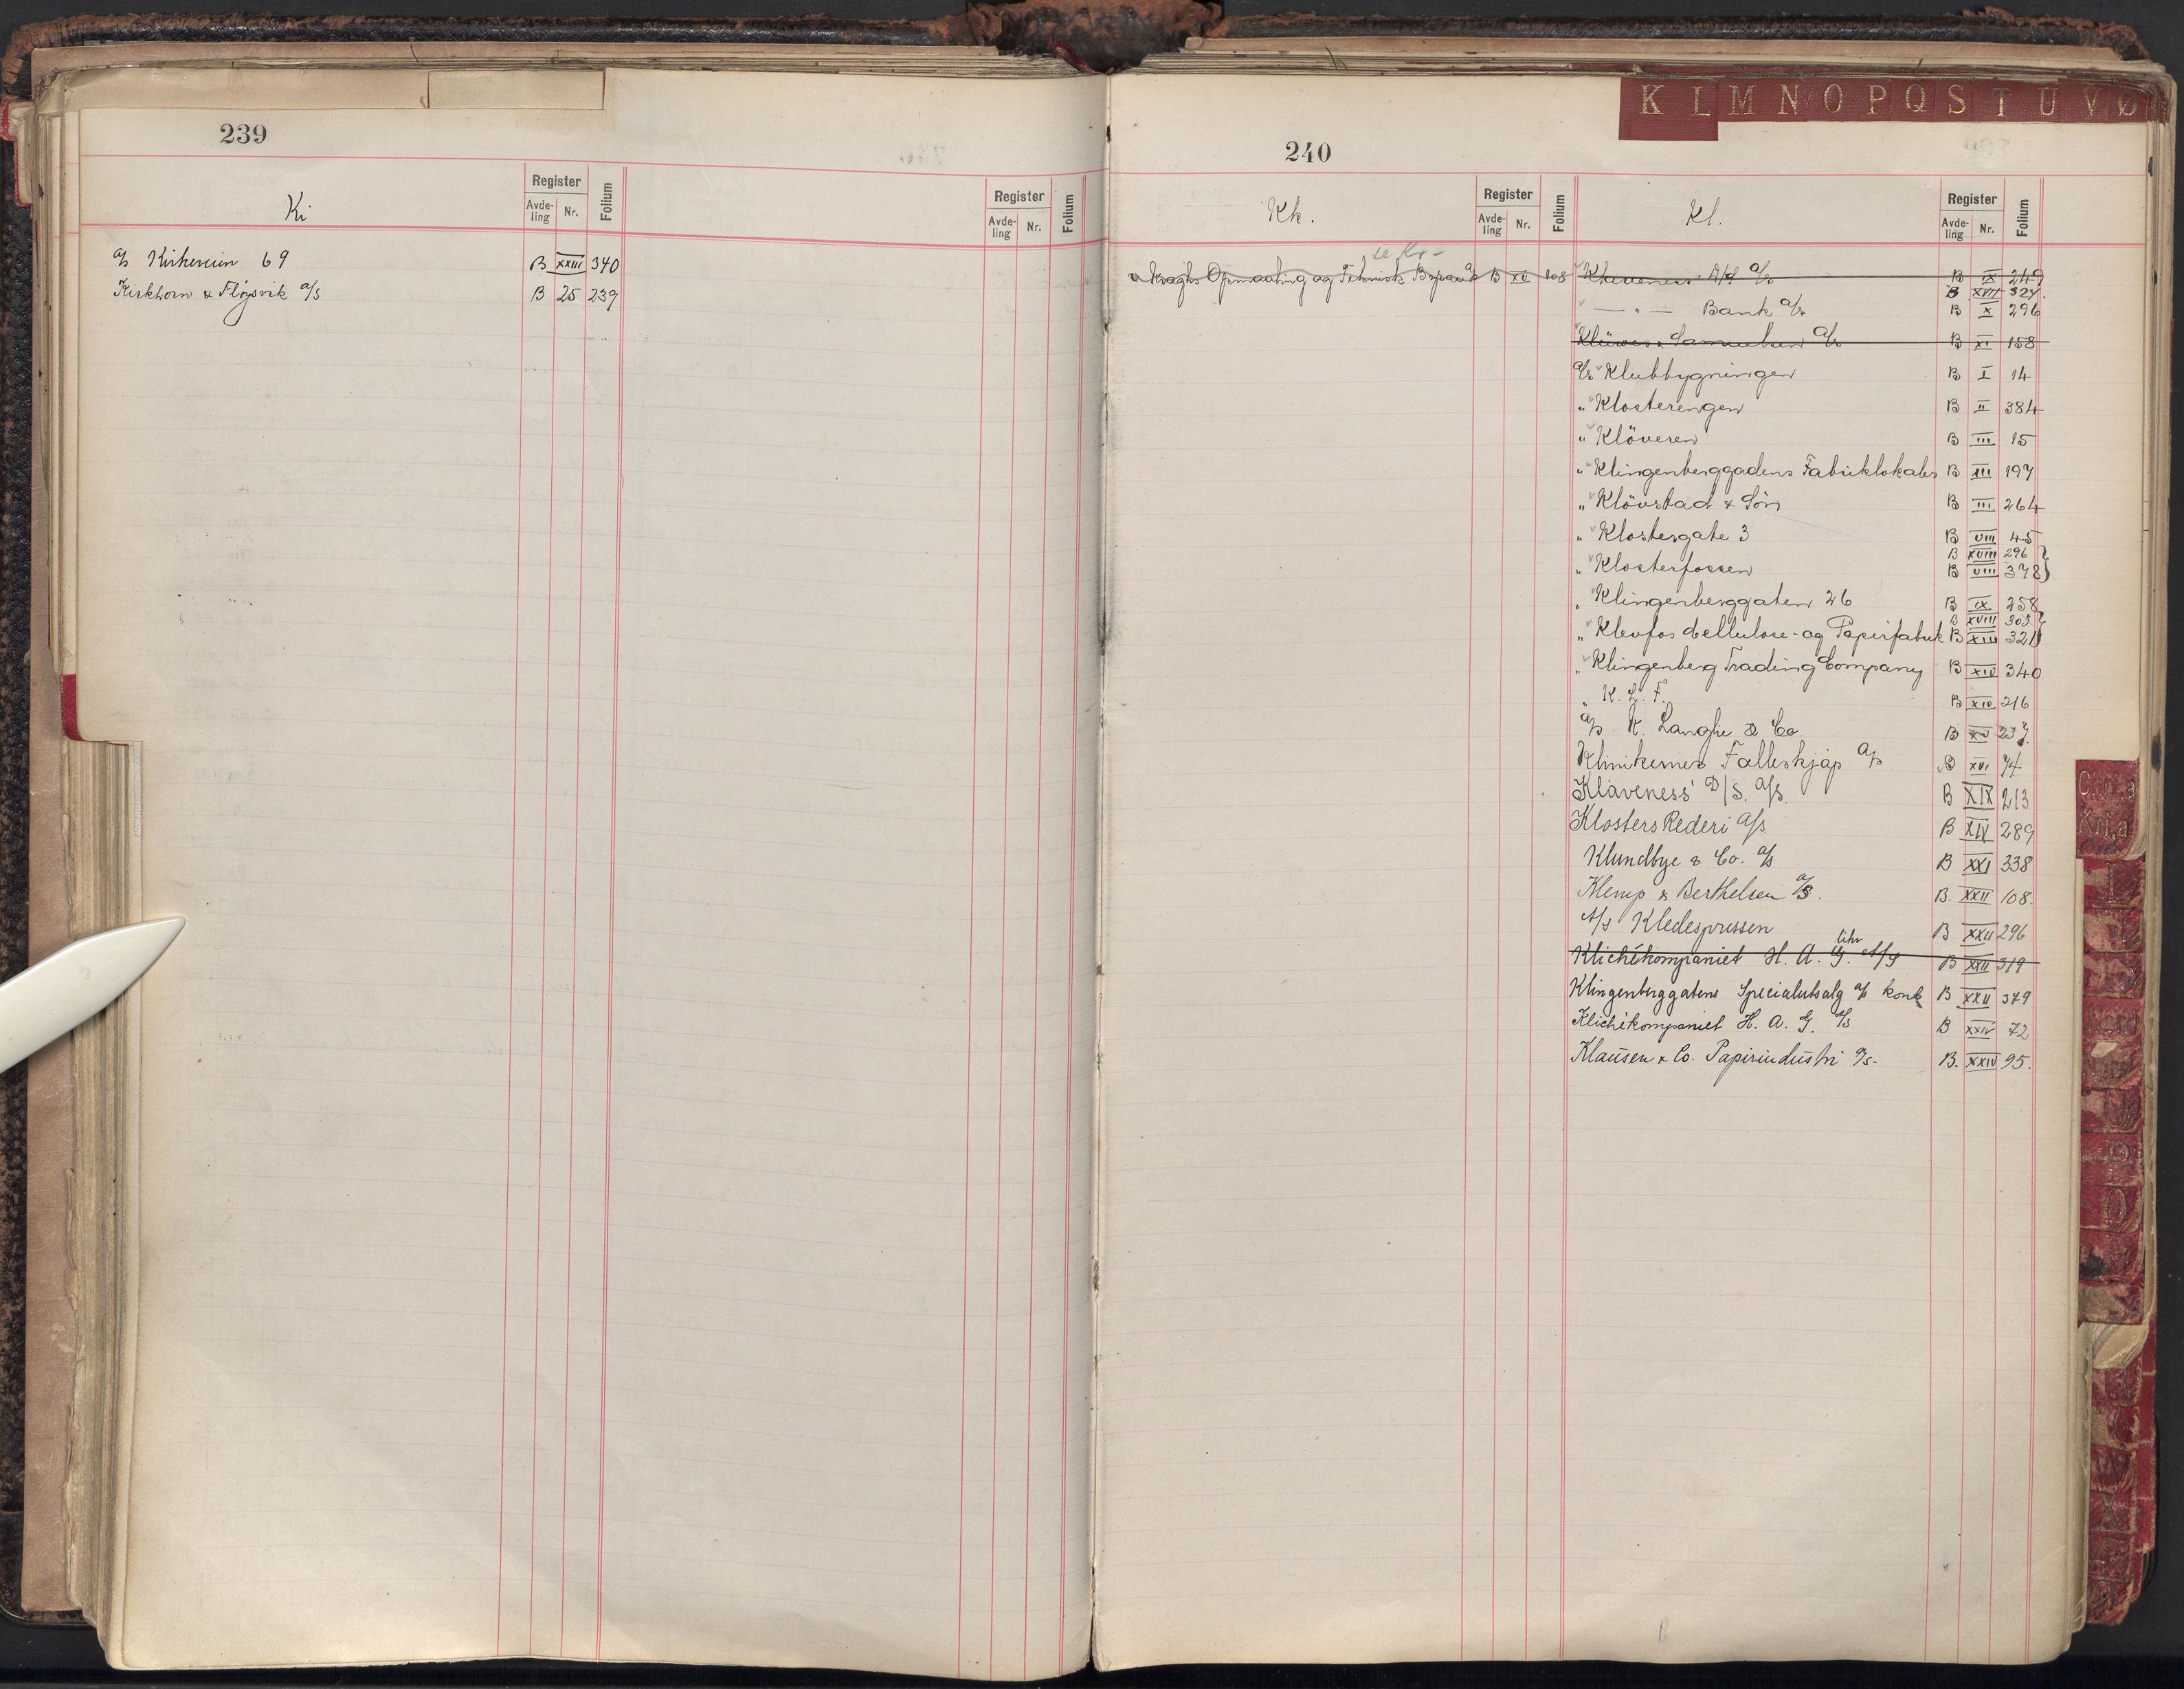 239
Ki
Register
Avde-
ling
Nr.
Folium
Register
Avde-
ling
Nr.
Folium
A/s Kirkeveien 69 B XXIII 340
Kirkhorn & Fløysvik A/S B 25 239
K L M N O P Q S T U V Ø
240
Kk.
Register
Avde-
ling
Nr.
Folium
Kl.
Register
Avde-
ling
Nr.
Folium
se Kr-
Kraghs Opmaaling og Teknisk B XV 108
Klaveness A/s B IX 249
B XVII 327.
— " — Bank A/s B X 296
Klüwer & Samuelsen A/s B XI 158
A/s Klubbygningen B I 14
" Klosterengen B II 384
" Klöveren B III 15
" Klingenberggadens Fabriklokaler B III 197
" Klövstad & Sön B III 264
" Klostergate 3 B VIII 45
B XVIII 296
" Klosterfossen B VIII 378
" Klingenberggaten 26 B IX 258
B XVIII 303
" Klevfos Cellulose- og Papirfabrik B XIII 321
" Klingenberg Trading Company B XIV 340
" K. L. F. B XIV 216
A/s K. Langlie & Co. B XV 237
Klinikernes Fælleskjøp A/s B XVI 74
Klaveness' D/S. A/S. B XIX 213
Klosters Rederi A/S B XIX 289
Klundbye & Co. A/S B XXI 338
Klemp & Berthelsen A/S. B. XXII 108.
A/S Kledespressen B XXII 296
likv
Klichékompaniet H. A. G. A/S B XXII 319
Klingenberggatens Specialutsalg A/S konk B XXII 349
Klichékompaniet H. A. G. A/S B XXIV 72
Klausen & Co. Papirindustri A/S- B. XXIV 95.